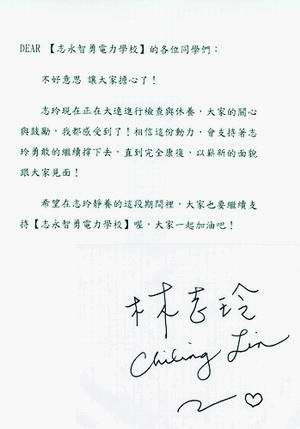 DEAR 【志永智勇電力學校】的各位同學們：
不好意思 讓大家擔心了！
志玲現在正在大連進行檢查與休養，大家的關心
與鼓勵，我都感受到了！相信這份動力，會支持著志
玲勇敢的繼續撐下去，直到完全康復，以嶄新的面貌
跟大家見面！
希望在志玲靜養的這段期間裡，大家也要繼續支
持【志永智勇電力學校】喔，大家一起加油吧！
林志玲
Chiling Lin